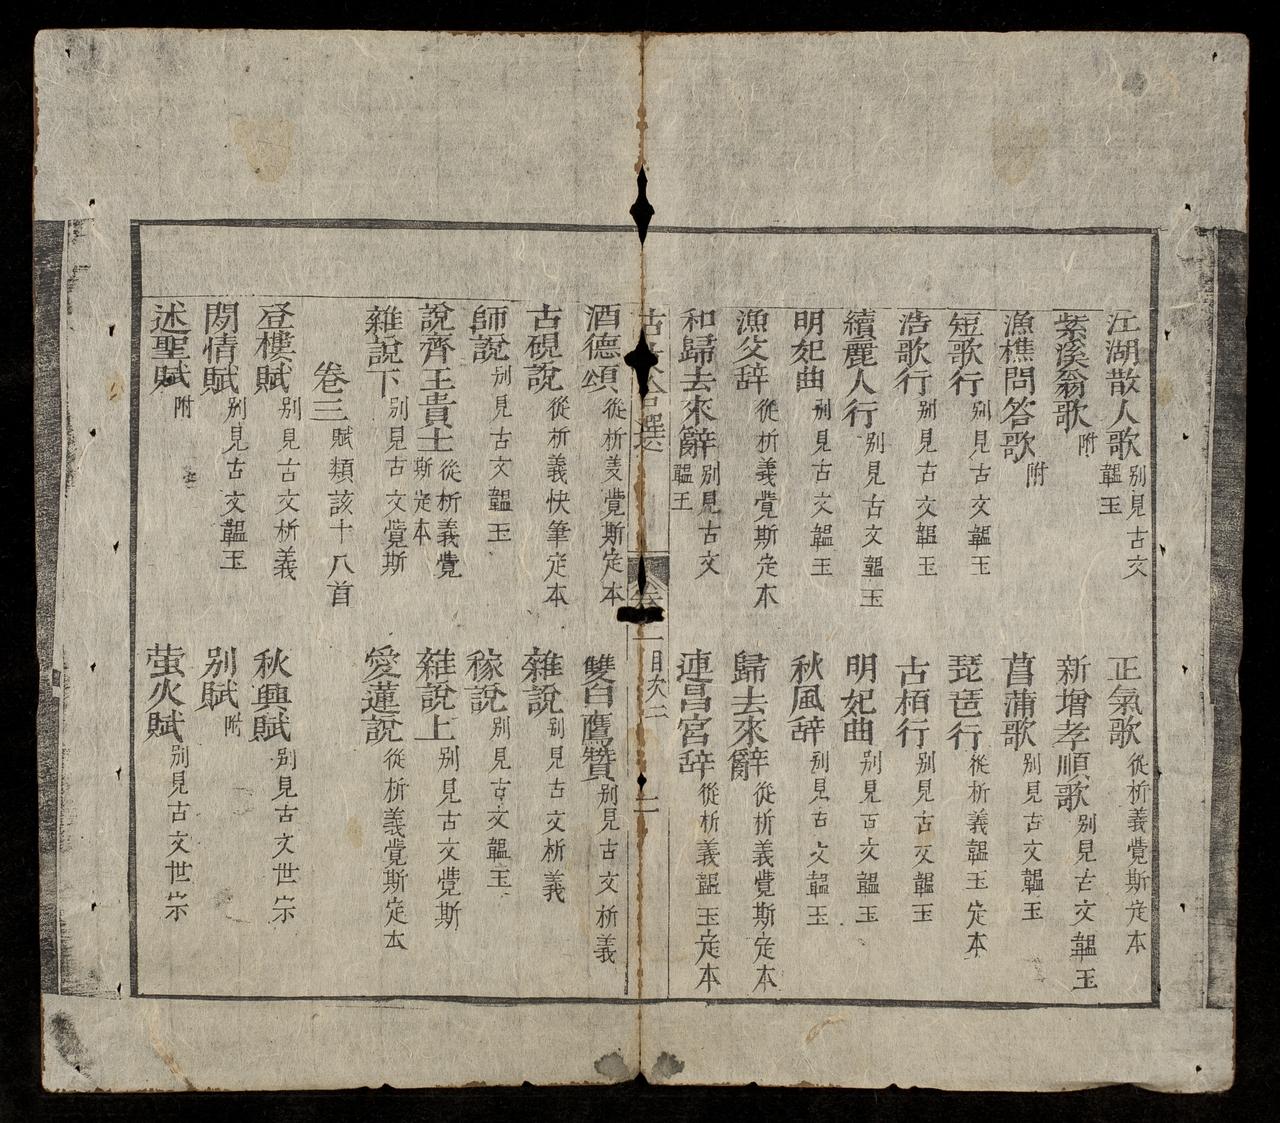 江湖散人歌 别見古文韞玉
正氣歌 從析義覺斯定本
紫溪翁歌 附
新增孝順歌 别見古文韞玉
漁樵問答歌 附
菖蒲歌 别見古文韞玉
短歌行 别見古文韞玉
琵琶行 從析義韞玉定本
浩歌行 别見古文韞玉
古栢行 别見古文韞玉
續麗人行 别見古文韞玉
明妃曲 别見古文韞玉
明妃曲 别見古文韞玉
秋風辞 别見古文韞玉
漁父辞 從析義覺斯定本
歸去來辭 從析義覺斯定本
和歸去來辭 别見古文韞玉
連昌宮辞 從析義韞玉定本
選 卷一目次二 二
酒德頌 從析義覺斯定本
雙白鷹贊 别見古文析義
古硯説 從析義快筆定本
雜説 别見古文析義
師説 别見古文韞玉
稼説 别見古文韞玉
說齊王貴士 從析義覺斯定本
雜説上 别見古文覺斯
雜説下 别見古文覺斯
愛蓮説 從析義覺斯定本
卷三 賦類該十八首
登樓賦 别見古文析義
秋興賦 别見古文世宗
閑情賦 别見古文韞玉
别賦 附
述聖賦 附
萤火賦 别見古文世宗